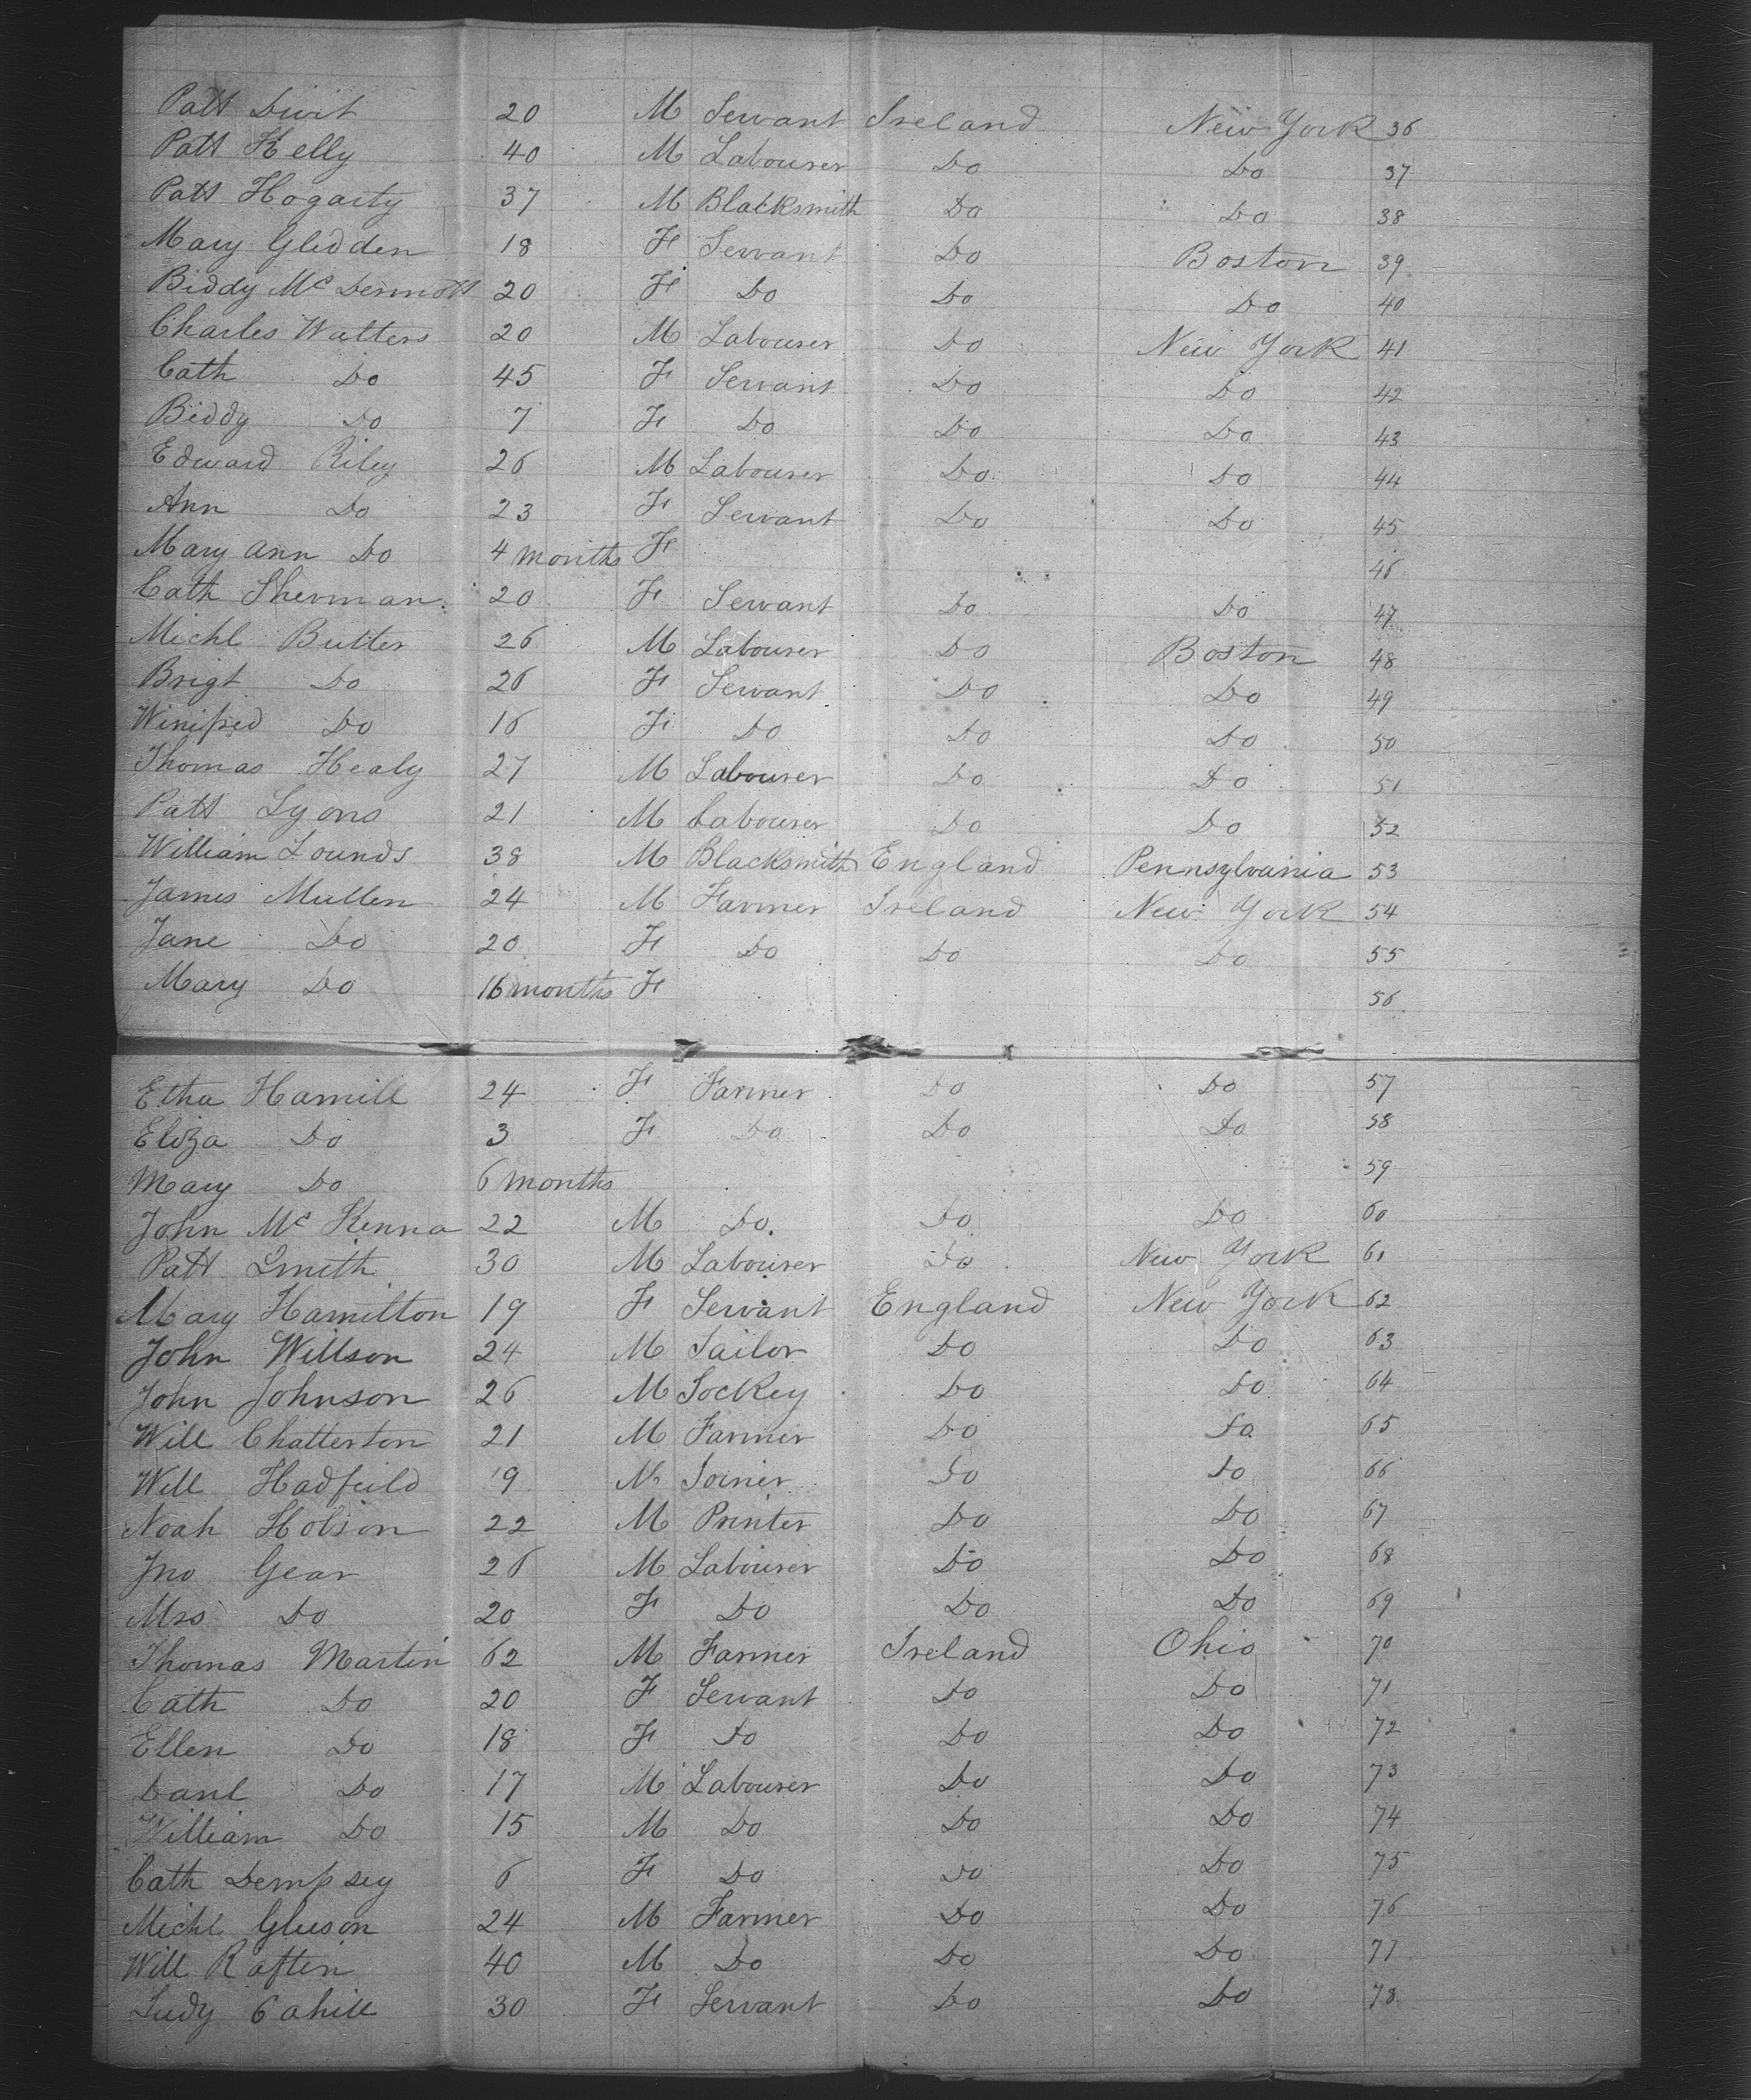 Patt Divit 20 M Servant Ireland New York 36
Patt Kelly 40 M Labourer Do Do 37
Patt Hogarty 37 M Blacksmith Do Do 38
Mary Gledden 18 F Servant Do Boston 39
Biddy McDermott 20 F Do Do Do 40
Charles Watters 20 M Labourer Do New York 41
Cath Do 45 F Servant Do Do 42
Biddy Do 7 F Do Do Do 43
Edward Riley 26 M Labourer Do Do 44
Ann Do 23 F Servant Do Do 45
Mary Ann Do 4 months F 46
Cath Sherman 20 F Servant Do Do 47
Michl Butter 26 M Labourer Do Boston 48
Brigt Do 26 F Servant Do Do 49
Winifred Do 16 F Do Do Do 50
Thomas Healy 27 M Labourer Do Do 51
Patt Lyons 21 M Labourer Do Do 52
William Lounds 38 M Blacksmith England Pennsylvania 53
James Mullen 24 M Farmer Ireland New York 54
Jane Do 20 F Do Do Do 55
Mary Do 16 months F 56
Etha Hamill 24 F Farmer Do Do 57
Eliza Do 3 F Do Do Do 58
Mary Do 6 months 59
John McKenna 22 M Do. Do Do 60
Patt Smith 30 M Labourer Do New York 61
Mary Hamilton 19 F Servant England New York 62
John Willson 24 M Sailor Do Do 63
John Johnson 26 M Jockey Do Do 64
Will Chatterton 21 M Farmer Do Do 65
Will Hadfeild 19 M Joiner Do Do 66
Noah Hobson 22 M Printer Do Do 67
Jno Gear 26 M Labourer Do Do 68
Mrs Do 20 F Do Do Do 69
Thomas Martin 62 M Farmer Ireland Ohio 70
Cath Do 20 F Servant Do Do 71
Ellen Do 18 F Do Do Do 72
Danl Do 17 M Labourer Do Do 73
William Do 15 M Do Do Do 74
Cath Dempsey 6 F Do Do Do 75
Michl Gleeson 24 M Farmer Do Do 76
Will Raften 40 M Do Do Do 77
Judy Cahill 30 F Servant Do Do 78